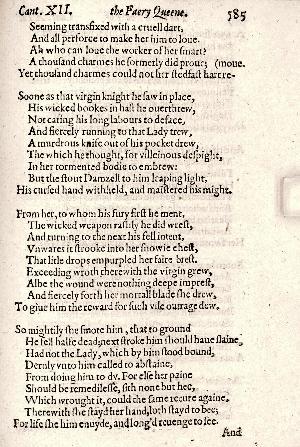 Cant. XII. the Faery Queene. 585
Seeming transfixed with a cruell dart,
And all perforce to make her him to loue.
Ah who can loue the worker of her smart?
A thousand charmes he formerly did proue; (moue.
Yet thousand charmes could not her stedfast hart re-
Soone as that virgin knight he saw in place,
His wicked bookes in hast he ouerthrew,
Not caring his long labours to deface,
And fiercely running to that Lady trew,
A murdrous knife out of his pocket drew,
The which he thought, for villeinous despight,
In her tormented bodie to embrew:
But the stout Damzell to him leaping light,
His cursed hand withheld, and maistered his might.
From her, to whom his fury first he ment,
The wicked weapon rashly he did wrest,
And turning to the next his fell intent,
Vnwares it strooke into her snowie chest,
That litle drops empurpled her faire brest.
Exceeding wroth therewith the virgin grew,
Albe the wound were nothing deepe imprest,
And fiercely forth her mortall blade she drew,
To giue him the reward for such vile outrage dew.
So mightily she smote him, that to ground
He fell halfe dead; next stroke him should haue slaine,
Had not the Lady, which by him stood bound,
Dernly vnto him called to abstaine,
From doing him to dy. For else her paine
Should be remedilesse, sith none but hee,
Which wrought it, could the same recure againe.
Therewith she stayd her hand, loth stayd to bee;
For life she him enuyde, and long'd reuenge to see.
And